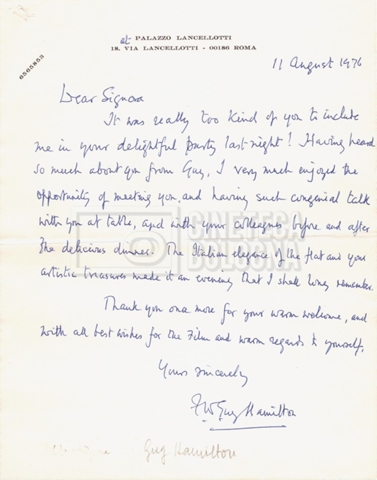 at PALAZZO LANCELLOTTI
18, VIA LANCELLOTTI - 00186 ROMA
6565852
11 August 1976
Dear Signora
It was really too kind of you to include
me in your delightful party last night! Having heard
so much about you from Guy, I very much enjoyed the
opportunity of meeting you, and having such congenial talk
with you at table, and with your colleagues before and after
the delicious dinner. The Italian elegance of the flat and your
artistic treasures made it an evening that I shall long remember.
Thank you once more for your warm welcome, and
with all best wishes for the Film and warm regards to yourself,
Yours sincerely
FW Guy Hamilton
Guy Hamilton
CINETECA
BOLOGNA